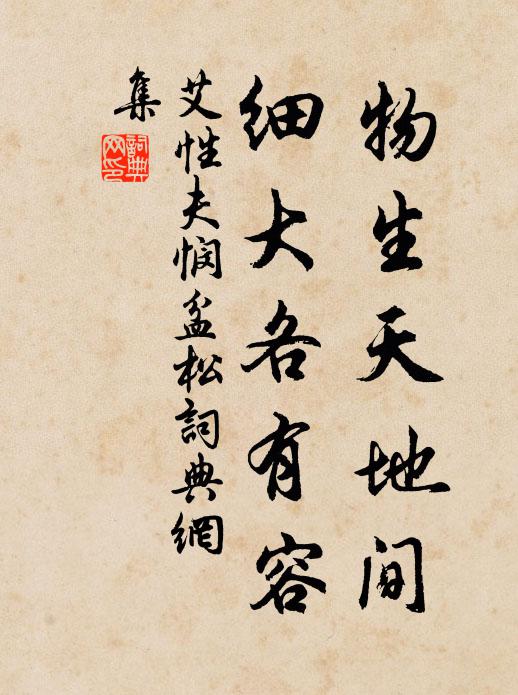 物生天地间
细大各有容
艾性夫悯盆松詞典網
集
詞典
网印